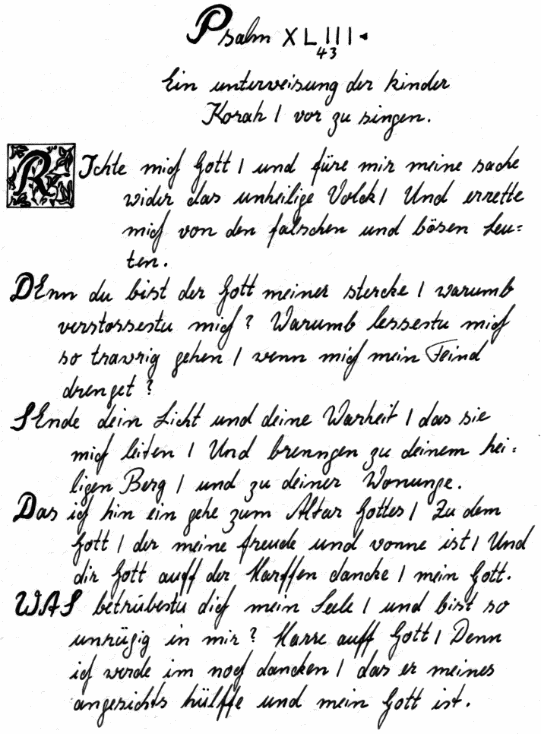 Psalm XLIII.
43
Ein unterweisung der kinder
Korah / vor zu singen.
RIchte mich Gott / und füre mir meine sache
wider das unheilige Volck / Und errette
mich von den falschen und bösen Leu=
ten.
DEnn du bist der Gott meiner stercke / warumb
verstossestu mich? Warumb lessestu mich
so trawrig gehen / wenn mich mein Feind
drenget?
SEnde dein Licht und deine Warheit / das sie
mich leiten / Und brenngen zu deinem hei=
ligen Berg / und zu deiner Wonunge.
Das ich hin ein gehe zum Altar Gottes / Zu dem
Gott / der meine freude und wonne ist / Und
dir Gott auff der Harffen dancke / mein Gott.
WAS betrübestu dich mein Seele / und bist so
unrügig in mir? Harre auff Gott / Denn
ich werde im noch dancken / das er meines
angesichts hülffe und mein Gott ist.